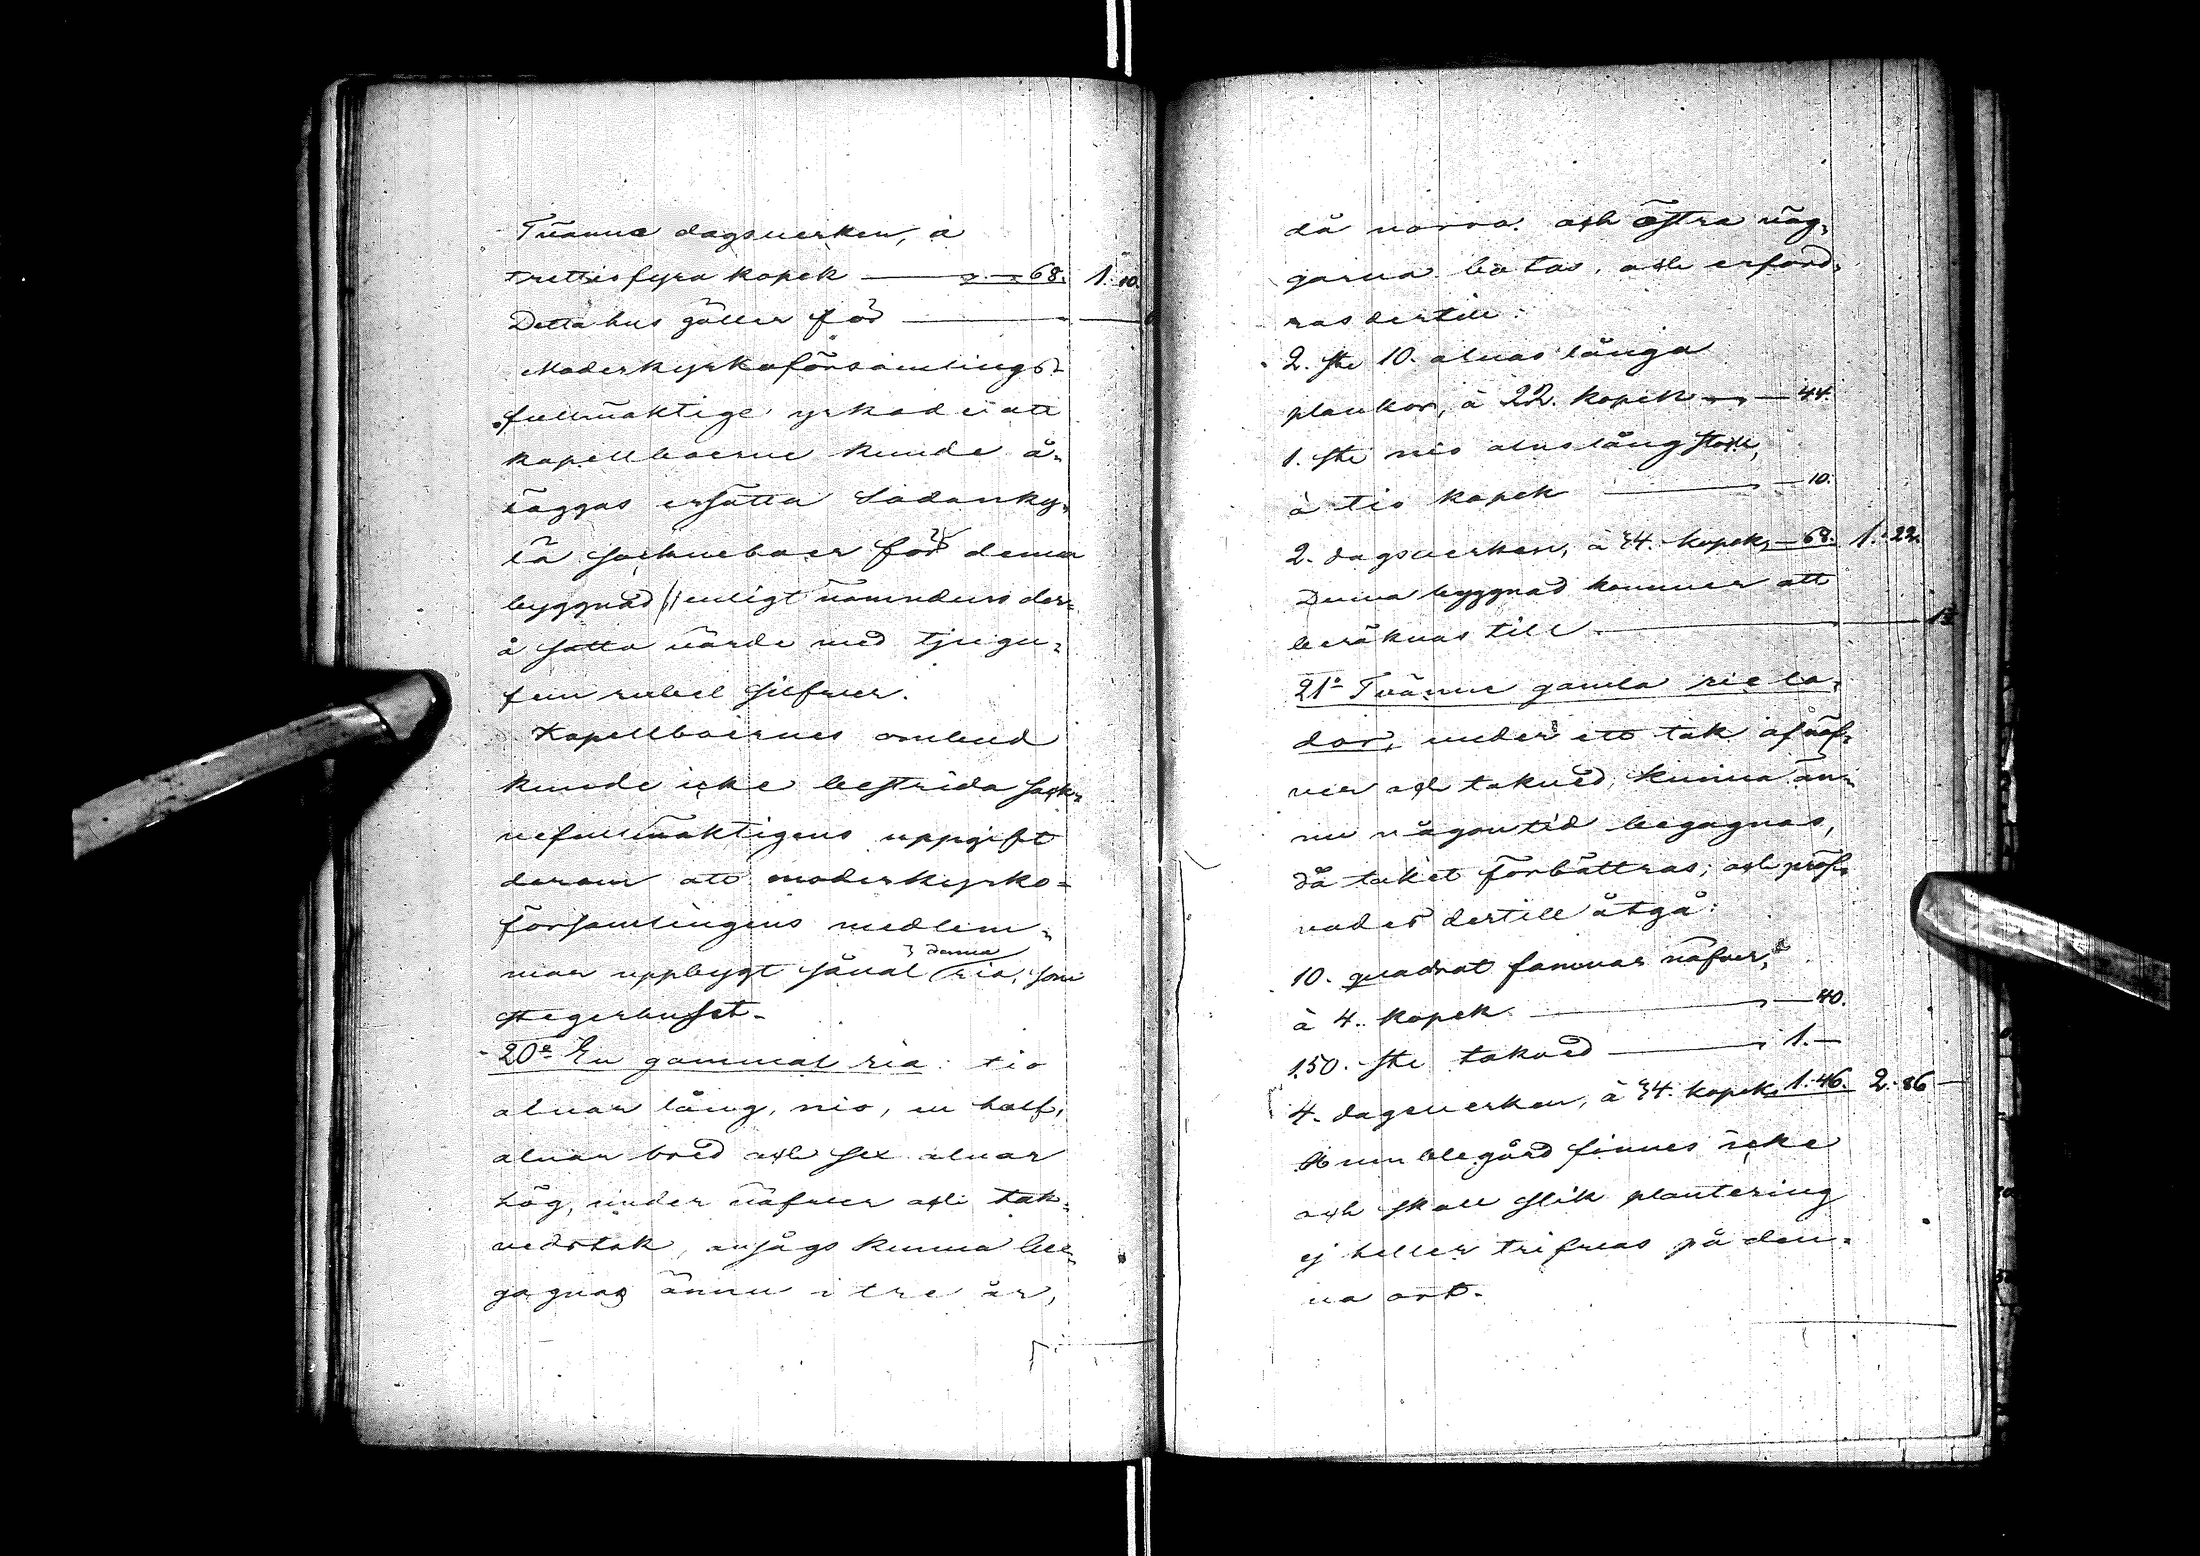 Tvänne dagsverken, à
trettiofyra kopek — „ — 68. 1. 10.
Detta hus gäller för —
Moderkyrkoförsamlings-
fullmäktige yrkade att
kapellboerne kunde å-
läggas ersätta Sodanky-
lä sockneboer för denna
byggnad enligt nämndens der-
å satta värde med tjugu-
fem rubel silfver.
Kapellboernes ombud
kunde icke bestrida sock-
nefullmäktigens uppgift
derom att moderkyrko-
församlingens medlem-
mar uppbygt såväl denna ria, som
stegerhuset.
20o En gammal ria: tio
alnar lång, nio, en half,
alnar bred och sex alnar
hög, under näfver och tak-
vedstak, ansågs kunna be-
gagnas ännu i tre år,
då norra och östra väg-
garna botas, och erford-
ras dertill:
2. ste 10. alnar långa
plankor, à 22. kopek — 44.
1. ste nio alns lång stock,
à tio kopek — 10.
2. dagsverken, à 34. kopek, — 68. 1. 22.
Denna byggnad kommer att
beräknas till —
21o Tvänne gamla rie la-
dor, under ett tak af näf-
ver och takved, kunna än-
nu någon tid begagnas,
då taket förbättras; och pröf-
vades dertill åtgå:
10. quadrat famnar näfver,
à 4. kopek — 40.
150. ste takved — 1. —
4. dagsverken, à 34. kopek, 1. 46. 2. 86 —
Humblegård finnes icke
och skall slik plantering
ej heller trifvas på den-
na ort.